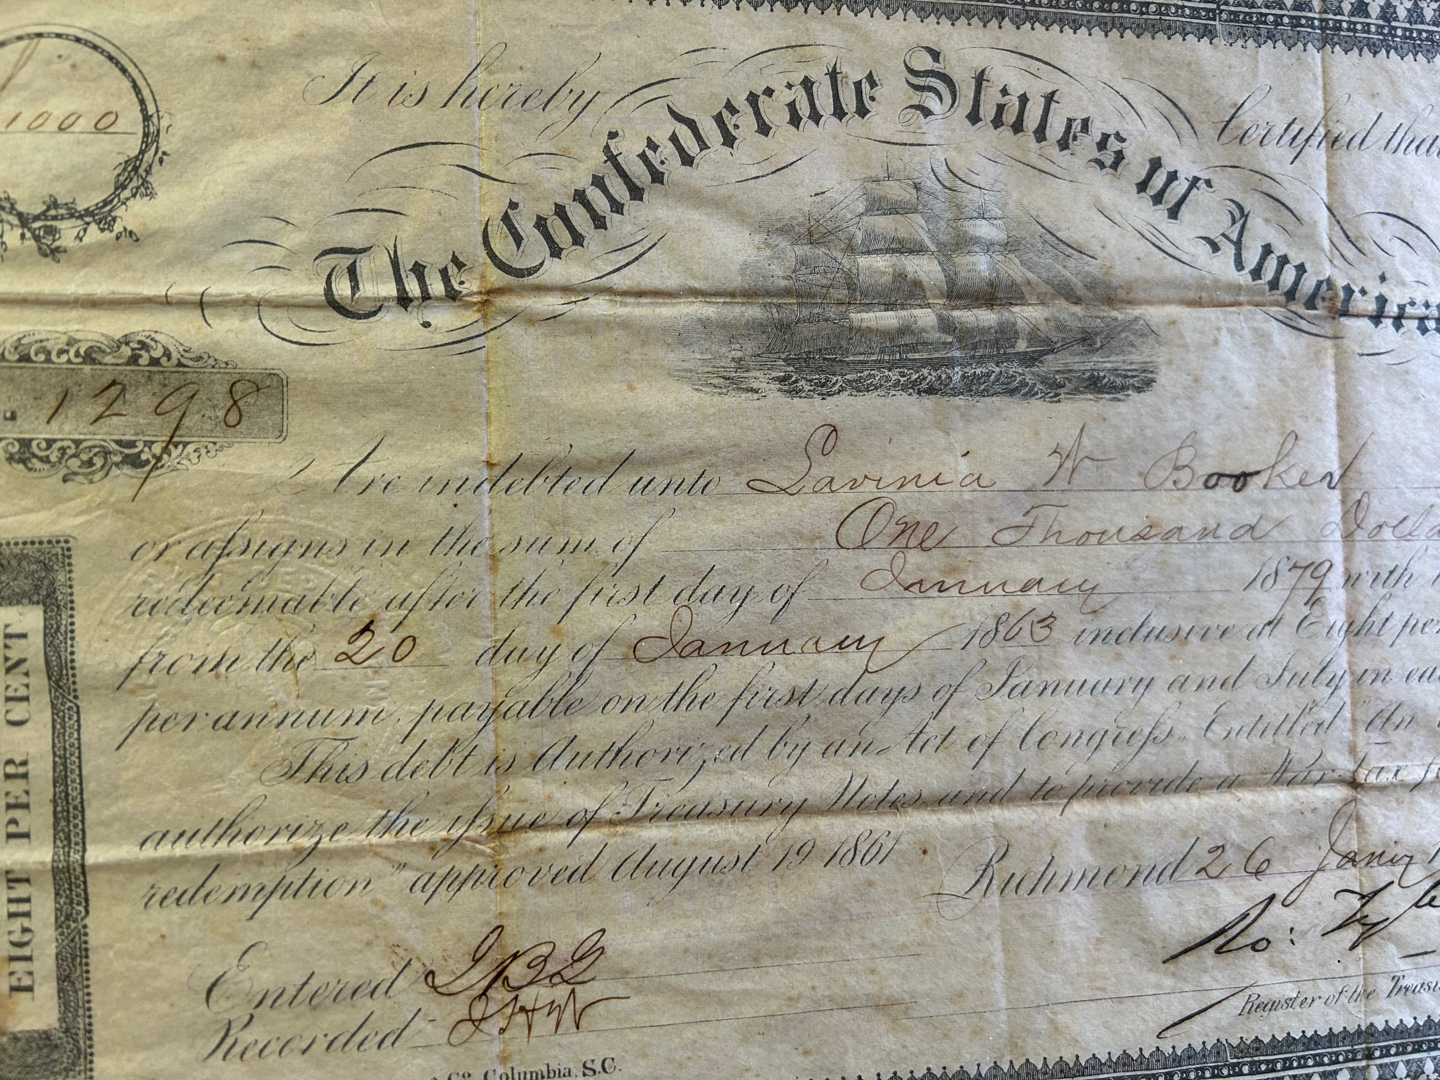 1000
It is hereby Certified that
The Confederate States of America
1298
Are indebted unto Lavinia W Booker
or assigns in the sum of One Thousand
redeemable after the first day of January 1879 with
from the 20 day of January 1863 inclusive at Eight per
per annum, payable on the first days of January and July in
This debt is Authorized by an Act of Congress, Entitled "An
authorize the issue of Treasury Notes and to provide a War Tax
redemption" approved August 19 1861
Richmond 26 Jany
Ro: Tyle
Register of the
Entered JBG
Recorded
Co. Columbia. S.C.
EIGHT PER CENT